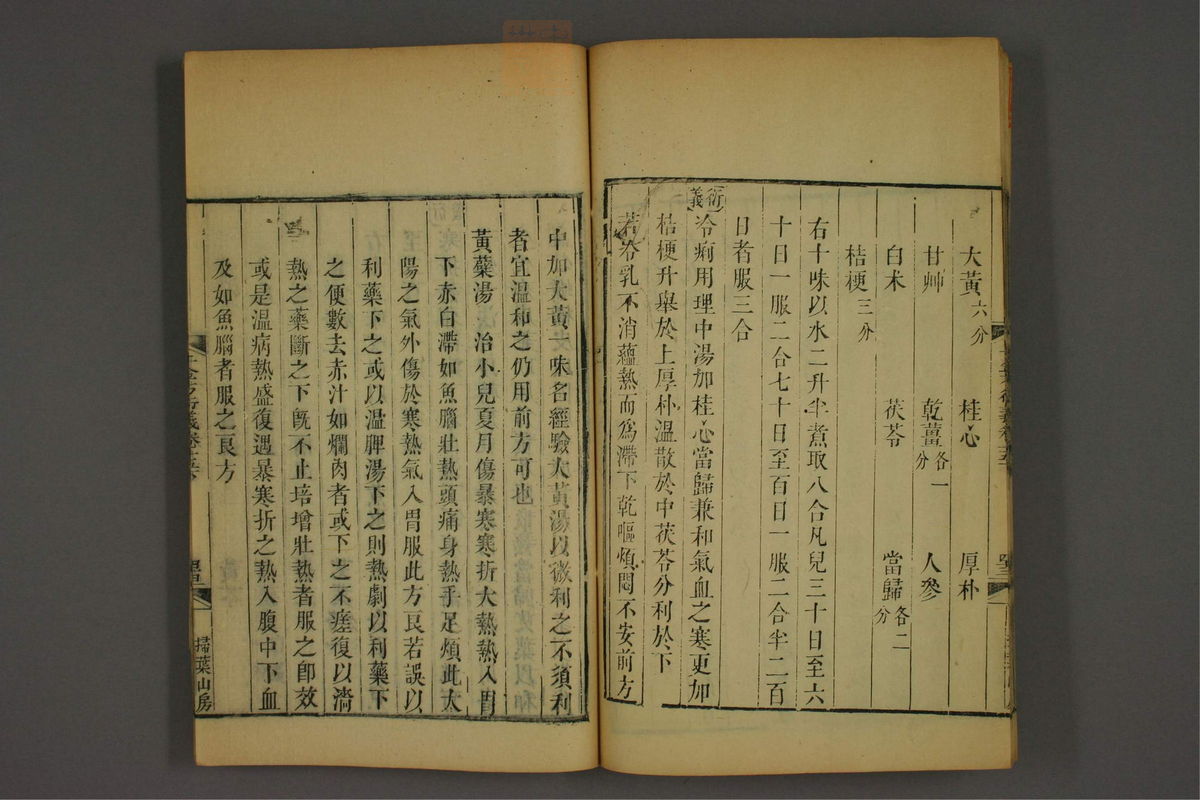 大黃六分　桂心　厚朴
甘艸　乾薑各一分　人參
白术　茯苓　當歸各二分
桔梗三分
右十味以水二升半煮取八合凡兒三十日至六
十日一服二合七十日至百日一服二合半二百
日者服三合
衍義冷痢用理中湯加桂心當歸兼和氣血之寒更加
桔梗升舉於上厚朴溫散於中茯苓分利於下
若冷乳不消蘊熱而爲滯下乾嘔煩悶不安前方
中加大黃一味名經驗大黃湯以微利之不須利
者宜溫和之仍用前方可也
黃蘗湯　治小兒夏月傷暴寒寒折大熱熱入胃
下赤白滯如魚腦壯熱頭痛身熱手足煩此太
陽之氣外傷於寒熱氣入胃服此方良若誤以
利藥下之或以溫脾湯下之則熱劇以利藥下
之便數去赤汁如爛肉者或下之不瘥復以濇
熱之藥斷之下旣不止培增壯熱者服之卽效
或是溫病熱盛復遇暴寒折之熱入腹中下血
及如魚腦者服之良方
掃葉山房